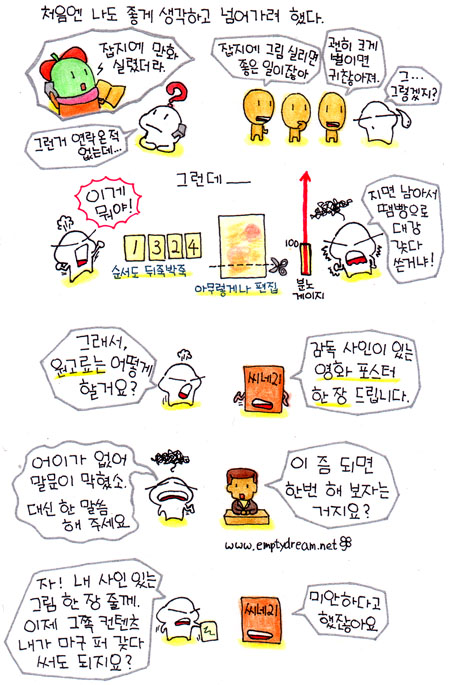 처음엔 나도 좋게 생각하고 넘어가려 했다.
잡지에 만화
실렸더라.
그런거 연락온적
없는데...
?
잡지에 그림 실리면
좋은 일이잖아
괜히 크게
벌이면
귀찮아져.
그...
그렇겠지?
그런데
이게
뭐야!
1 3 2 4
순서도 뒤죽박죽
아무렇게나 편집
100
분노
게이지
지면 남아서
땜빵으로
대강
갖다
쓴거냐!
그래서,
원고료는 어떻게
할거요?
씨네21
감독 사인이 있는
영화 포스터
한 장 드립니다.
어이가 없어
말문이 막혔소.
대신 한 말씀
해 주세요.
이 쯤 되면
한번 해 보자는
거지요?
www.emptydream.net
자! 내 사인 있는
그림 한 장 줄께.
이제 그쪽 컨텐츠
내가 마구 퍼 갖다
써도 되지요?
씨네21
미안하다고
했잖아요